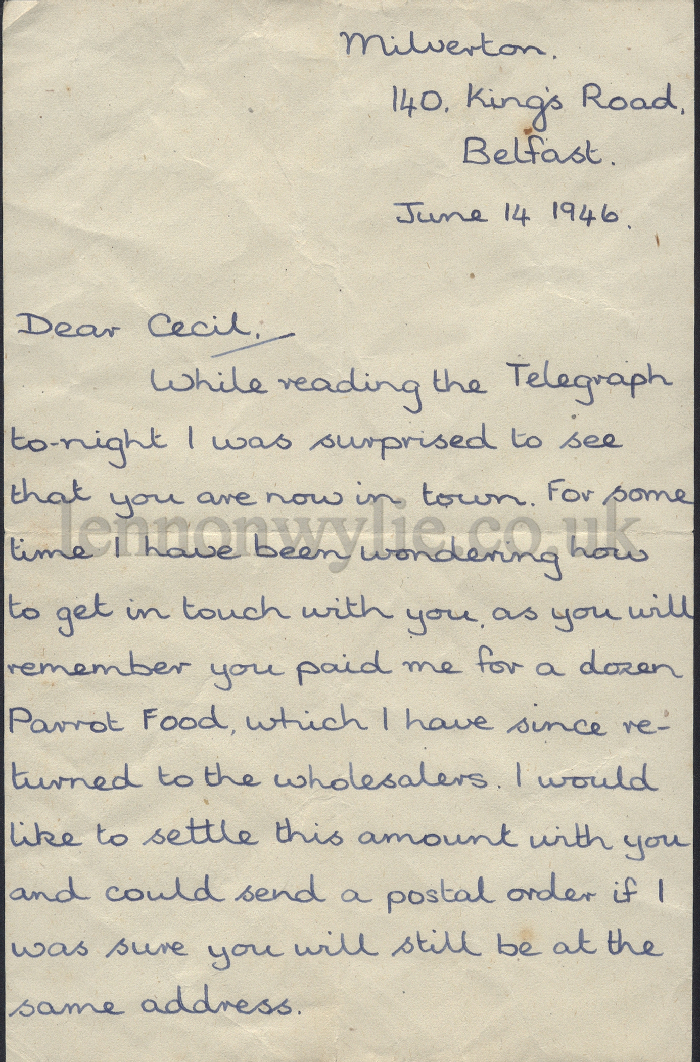 Milverton.
140, King's Road,
Belfast.
June 14 1946.
Dear Cecil.
While reading the Telegraph
to-night I was surprised to see
that you are now in town. For some
lennonwylie.co.uk
time I have been wondering how
to get in touch with you, as you will
remember you paid me for a dozen
Parrot Food, which I have since re-
turned to the wholesalers. I would
like to settle this amount with you
and could send a postal order if I
was sure you will still be at the
same address.